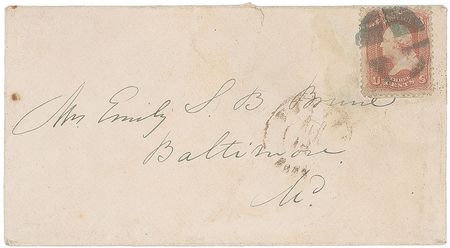 Mrs Emily S. B. Brune
Baltimore.
Md.
THREE
CENTS
U S